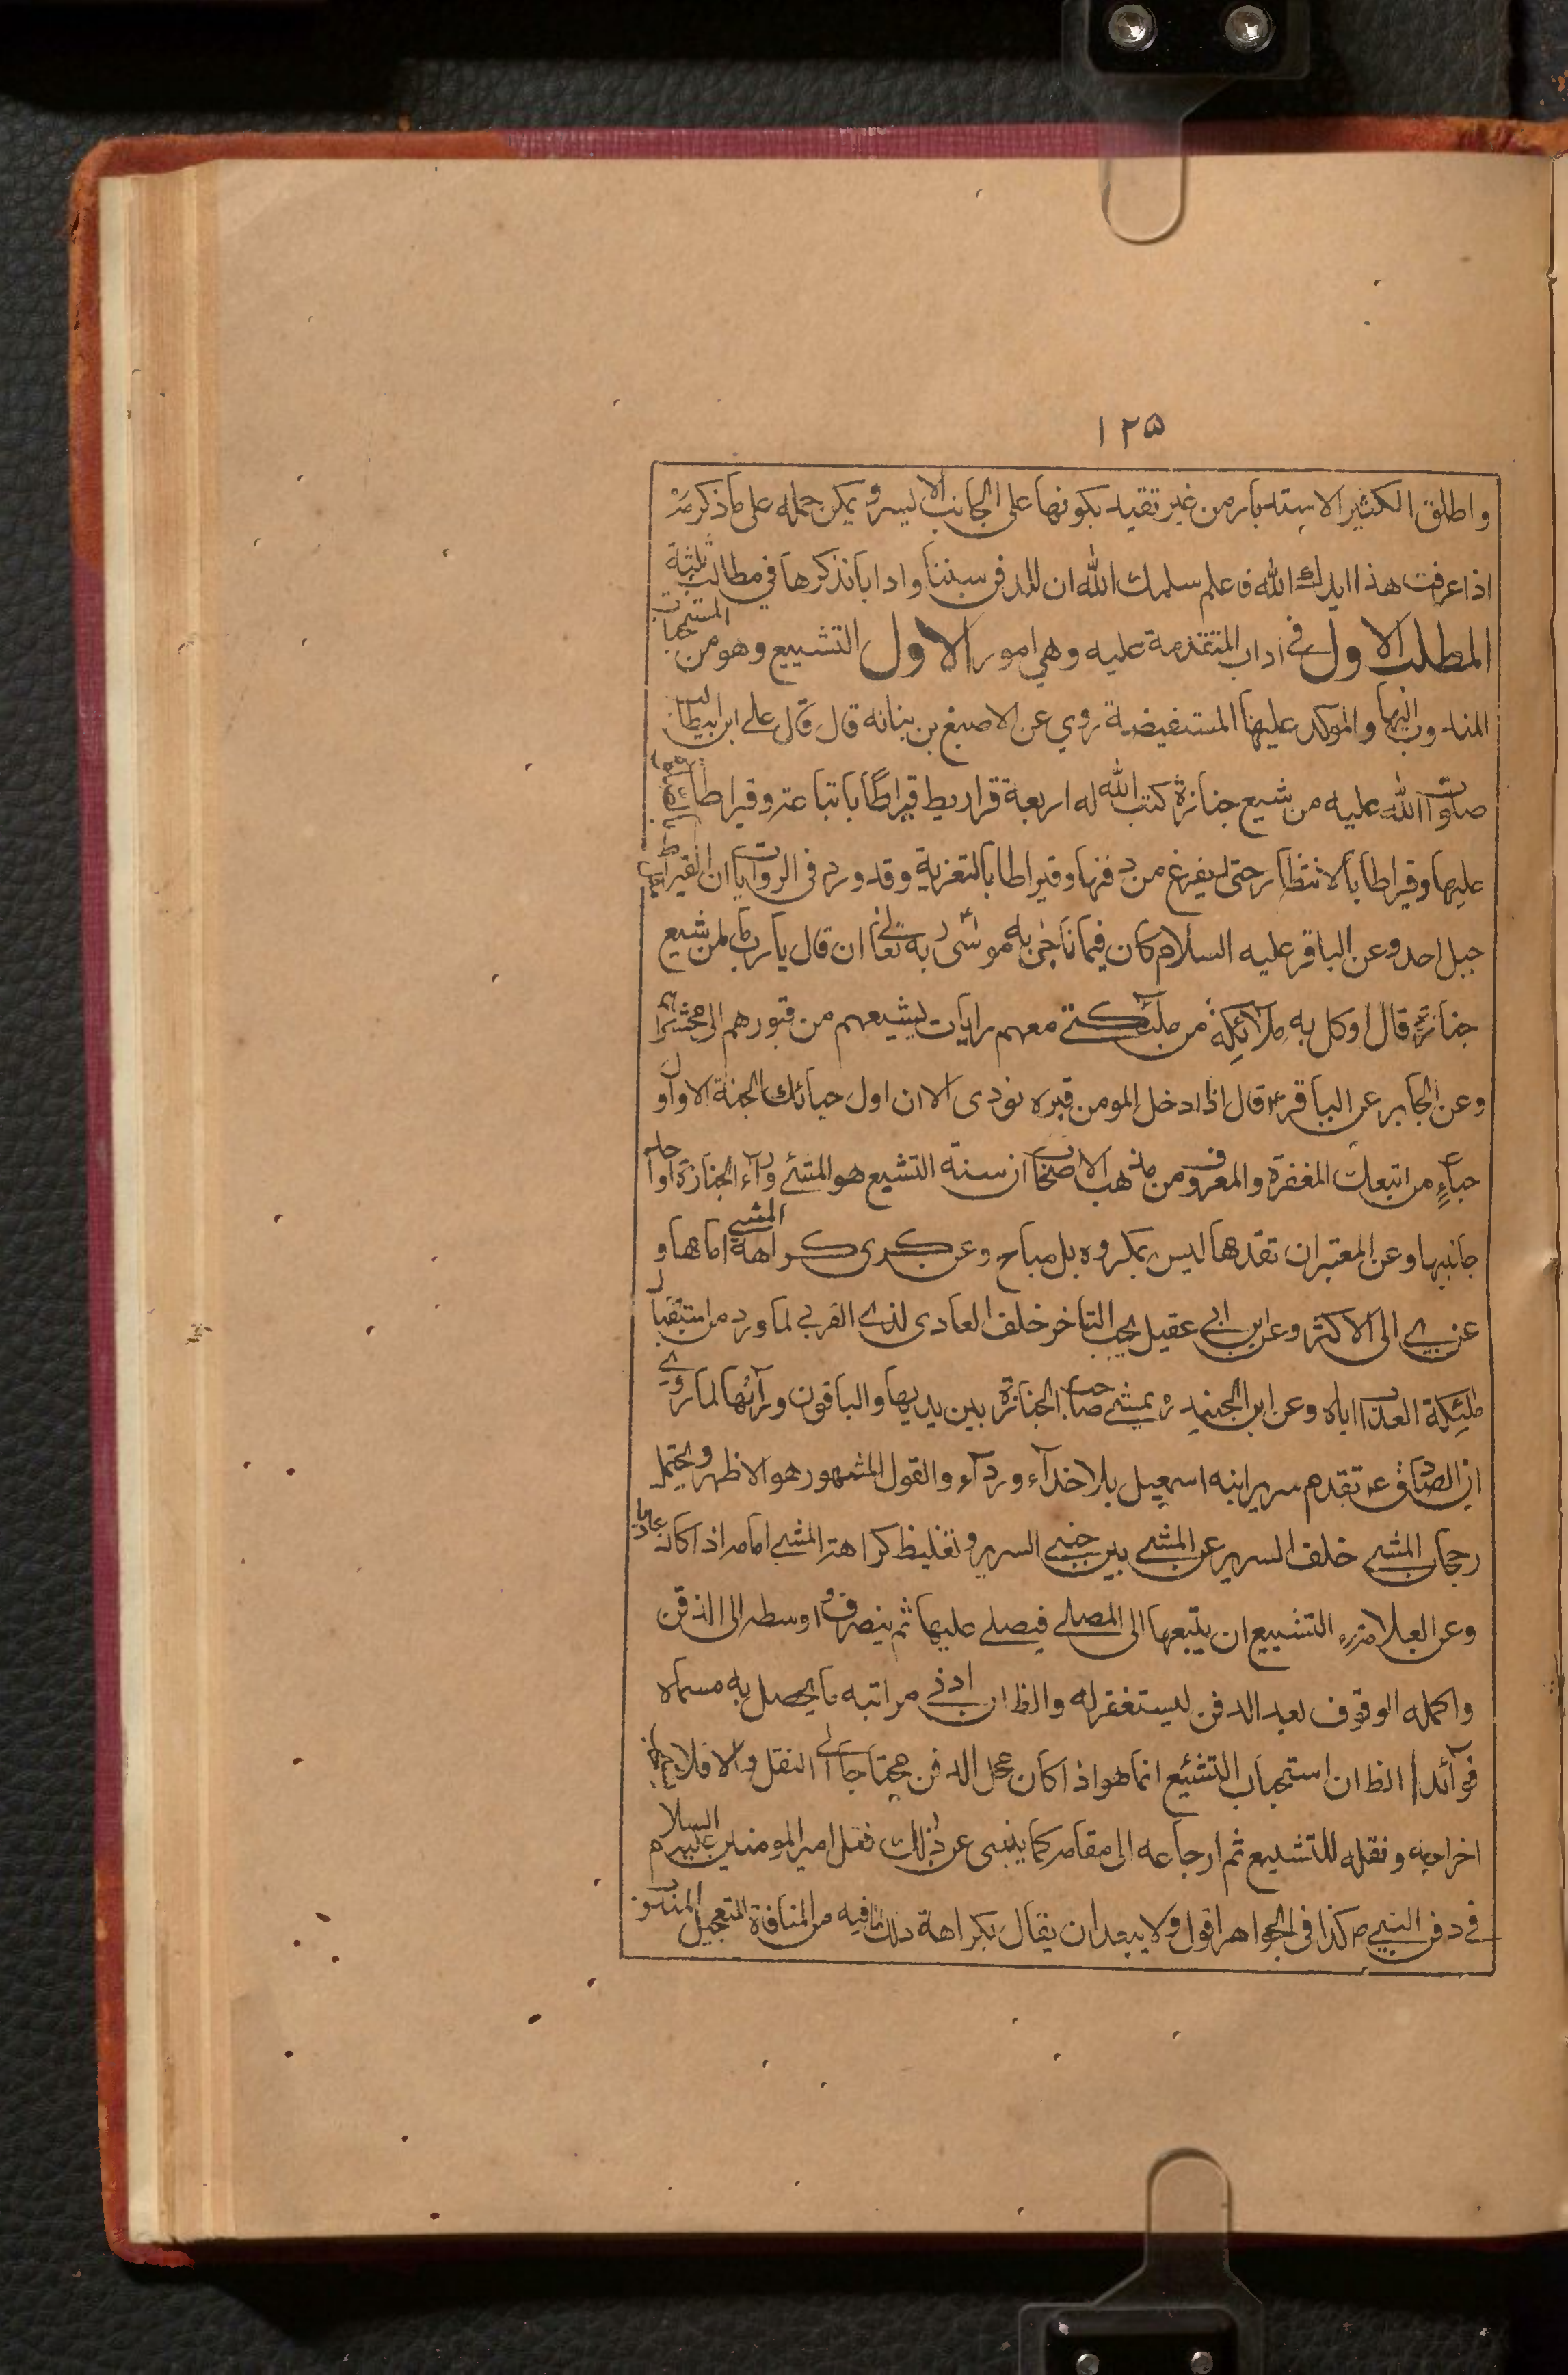 ١٢٥
واطلق الكثير الاستدبار من غير تقييد بكونها على الجانب الايسر ويمكن حمله على ما ذكر
اذا عرفت هذا ايدك الله فاعلم سلمك الله ان للدفن سننا وادابا نذكرها في مطالب ثلثة
المطلب الاول في اداب المتقدمة عليه وهي امور الاول التشييع وهو من المستحبات
المندوب اليها والموكد عليها المستفيضة روي عن الاصبغ بن بناته قال قال علي ابن ابيطالب
صلوات الله عليه من شيع جنازة كتب الله له اربعة قراريط قيراطا باتباعه وقيراطا
عليها وقيراطا بالانتظار حتى يفرغ من دفنها وقيراطا بالتعزية وقد ورد في الروايات ان القيراط
جبل احد وعن الباقر عليه السلام كان فيما ناجى به موسى ربه تعالى ان قال يا رب ما لمن شيع
جنازة قال اوكل به ملائكة من ملئكتي معهم رايات يشيعهم من قبورهم الى محشرهم
وعن الجابر عن الباقر ع قال اذا ادخل المومن قبره نودى الا ان اول حبائك الجنة الا واول
حباء من اتبعك المغفرة والمعروف من مذهب الاصحاب ان سنة التشيع هو المشي وراء الجنازة او احد
جانبيها وعن المعتبر ان تقدمها ليس بمكروه بل مباح وعن كرى كراهة المشي امامها و
عزي الى الاكثر وعن ابن ابي عقيل يجب التاخر خلف العادى لذي القربي لما ورد من استقبال
ملئكة العذاب اياه وعن ابن الجنيد يمشي صاحب الجنازة بين يديها والباقون ورائها لما روي
ان الصادق ع تقدم سرير ابنه اسمعيل بلا حذاء ورداء والقول المشهور هو الاظهر ويحتمل
رجحان المشي خلف السرير عن المشي بين جنبي السرير وتغليظ كراهة المشي امامه اذا كان
وعن العلامة ره التشييع ان يتبعها الى المصلي فيصلي عليها ثم ينصرف واوسطه الى الدفن
واكمله الوقوف بعد الدفن ليستغفر له والظ ان ادنى مراتبه ما يحصل به مسماه
فوائد / الظ ان استحباب التشيع انما هو اذا كان محل الدفن محتاجا الى النقل والا فلا
اخراجه ونقله للتشييع ثم ارجاعه الى مقامه كما ينبي عن ذلك فعل امير المومنين عليه السلام
في دفن النبي ص كذا في الجواهر اقول ولا يبعد ان يقال بكراهة ذلك لما فيه من المنافاة للتعجيل المندوب